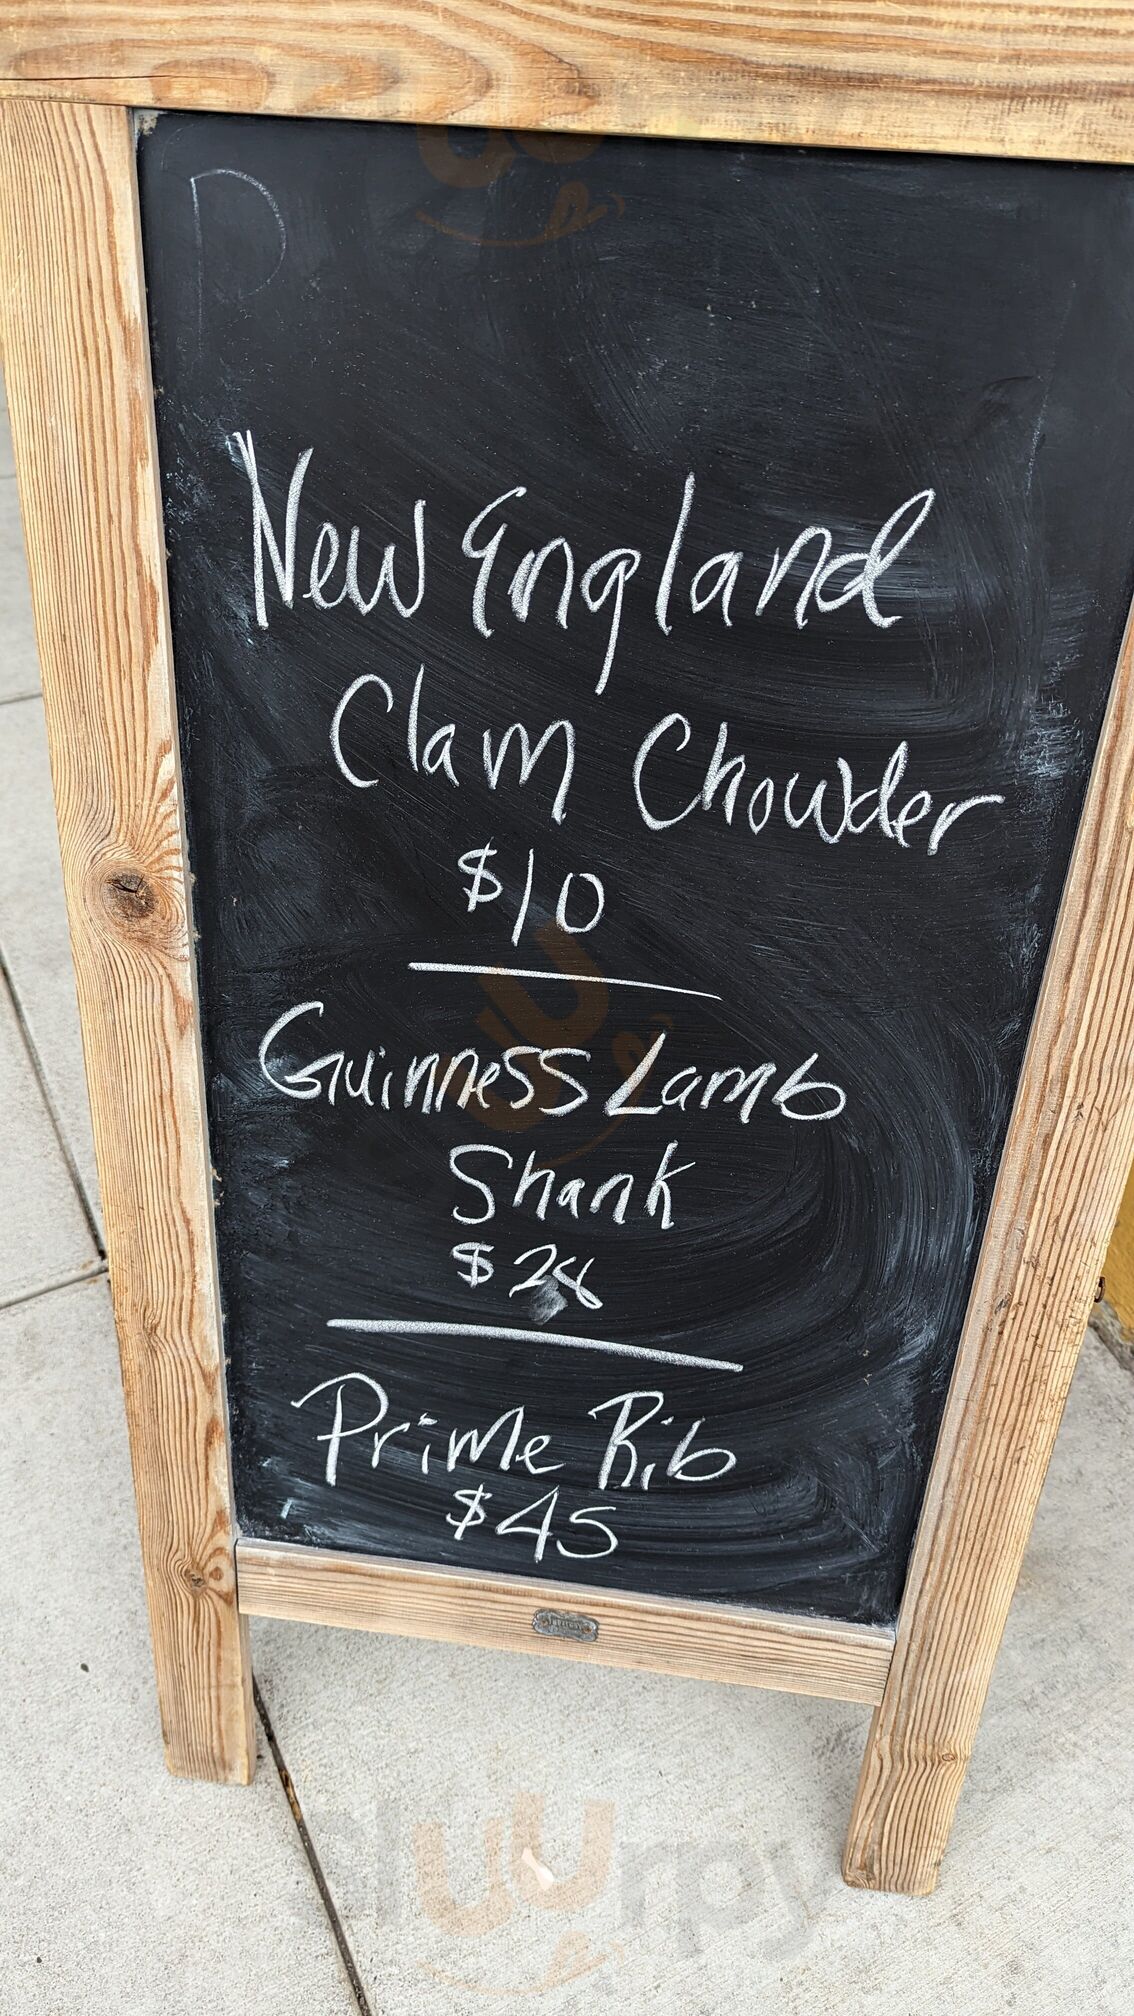 New England
Clam Chowder
$10
Guinness Lamb
Shank
$28
Prime Rib
$45
sluurpy